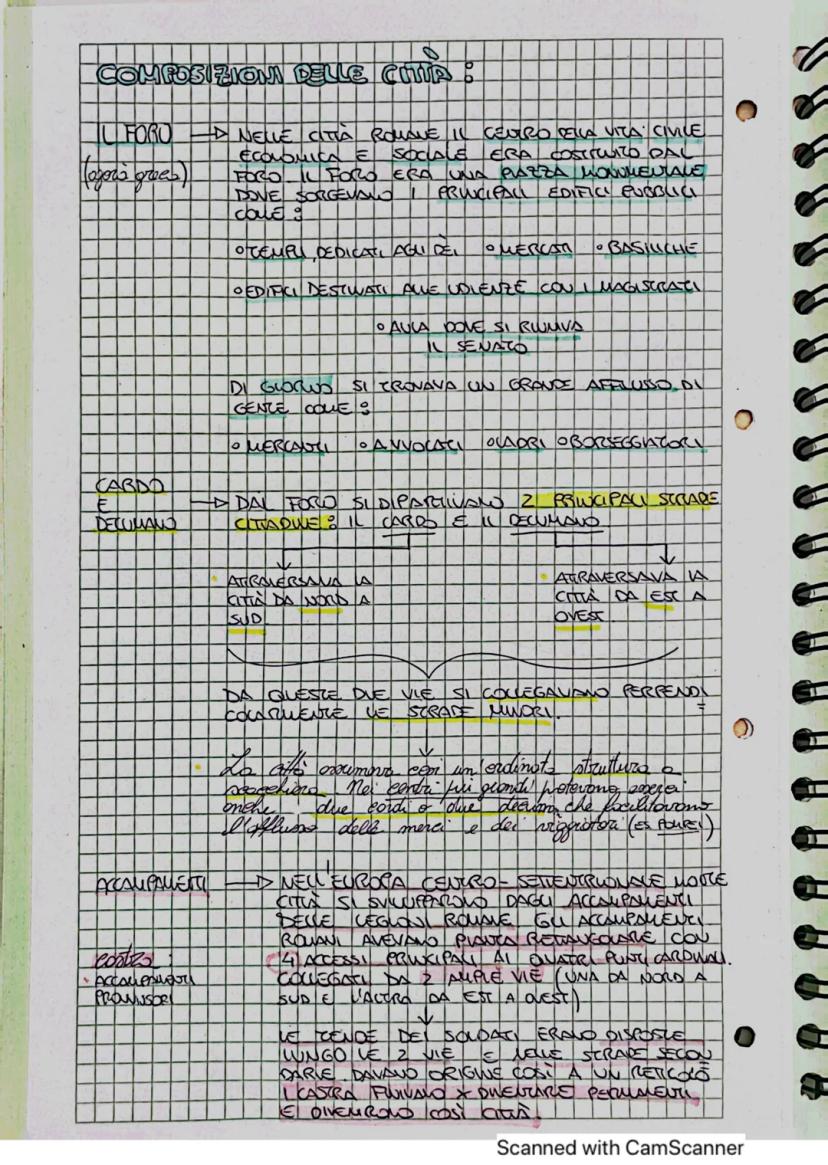 COMPOSIZIONI DELLE CITTÀ:
IL FORO → NELLE CITTÀ ROMANE IL CENTRO DELLA VITA CIVILE
(agorà greca) ECONOMICA E SOCIALE ERA COSTITUITO DAL
FORO IL FORO ERA UNA PIAZZA MONUMENTALE
DOVE SORGEVANO I PRINCIPALI EDIFICI PUBBLICI
COME:
◦TEMPLI DEDICATI AGLI DÈI ◦MERCATI ◦BASILICHE
◦EDIFICI DESTINATI ALLE UDIENZE CON I MAGISTRATI
◦AULA DOVE SI RIUNIVA
IL SENATO
DI GIORNO SI TROVAVA UN GRANDE AFFLUSSO DI
GENTE COME:
◦MERCANTI ◦AVVOCATI ◦LADRI ◦BORSEGGIATORI
CARDO
E → DAL FORO SI DIPARTIVANO 2 PRINCIPALI STRADE
DECUMANO CITTADINE: IL CARDO E IL DECUMANO
• ATTRAVERSAVA LA • ATTRAVERSAVA LA
CITTÀ DA NORD A CITTÀ DA EST A
SUD OVEST
DA QUESTE DUE VIE SI COLLEGAVANO PERPENDI=
COLARMENTE LE STRADE MINORI.
• La città assumeva così un'ordinata struttura a
scacchiera. Nei centri più grandi potevano esserci
anche due cardi o due decumani che facilitavano
l'afflusso delle merci e dei viaggiatori (ES POMPEI)
ACCAMPAMENTI → NELL'EUROPA CENTRO-SETTENTRIONALE MOLTE
CITTÀ SI SVILUPPARONO DAGLI ACCAMPAMENTI
DELLE LEGIONI ROMANE. GLI ACCAMPAMENTI
ROMANI AVEVANO PIANTA RETTANGOLARE CON
castra: 4 ACCESSI PRINCIPALI AI QUATTRI PUNTI CARDINALI.
• ACCAMPAMENTI COLLEGATI DA 2 AMPLE VIE (UNA DA NORD A
PROVVISORI SUD E L'ALTRA DA EST A OVEST)
LE TENDE DEI SOLDATI ERANO DISPOSTE
LUNGO LE 2 VIE E NELLE STRADE SECON
DARIE DAVANO ORIGINE COSÌ A UN RETICOLO
I CASTRA FINIVANO X DIVENTARE PERMANENTI
E DIVENNERO COSÌ CITTÀ.
Scanned with CamScanner